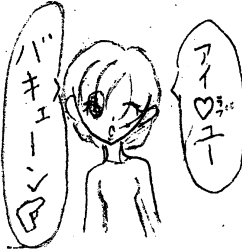 アイ♡ユー
ラブ
バキューン